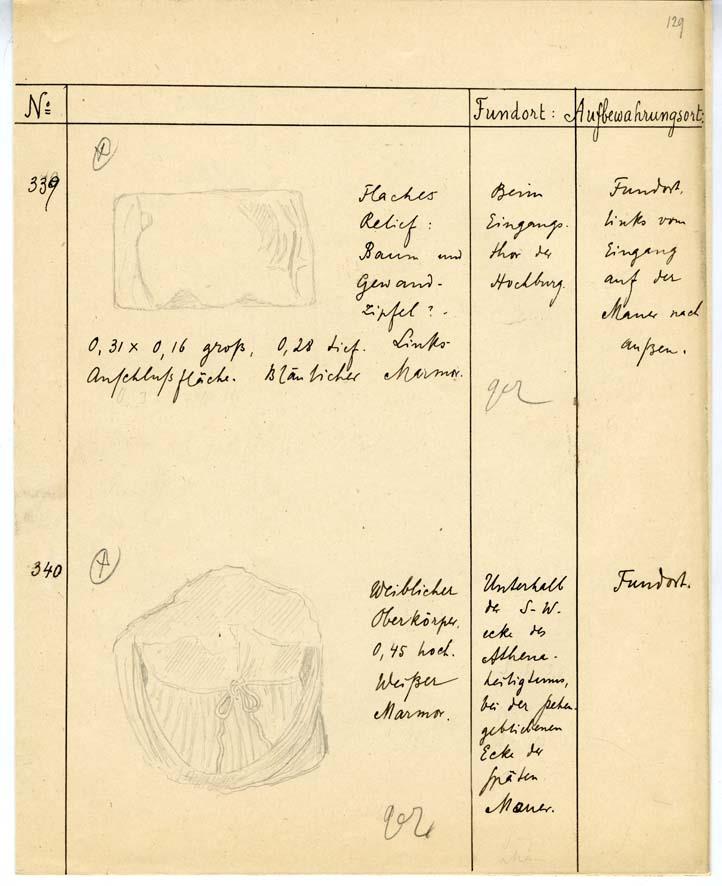 129
No Fundort: Aufbewahrungsort:
339
Flaches
Relief:
Baum und
Gewand-
zipfel? -
0,31 x 0,16 groß, 0,28 tief. Links
Anschlußfläche. Bläulicher Marmor.
Beim
Eingangs-
thor der
Hochburg.
Fundort,
links vom
Eingang
auf der
Mauer nach
außen.
gez
340
Weiblicher
Oberkörper.
0,45 hoch.
Weißer
Marmor.
Unterhalb
der S-W-
ecke des
Athena-
heiligtums,
bei der stehen-
gebliebenen
Ecke der
späten
Mauer.
Fundort.
gez.